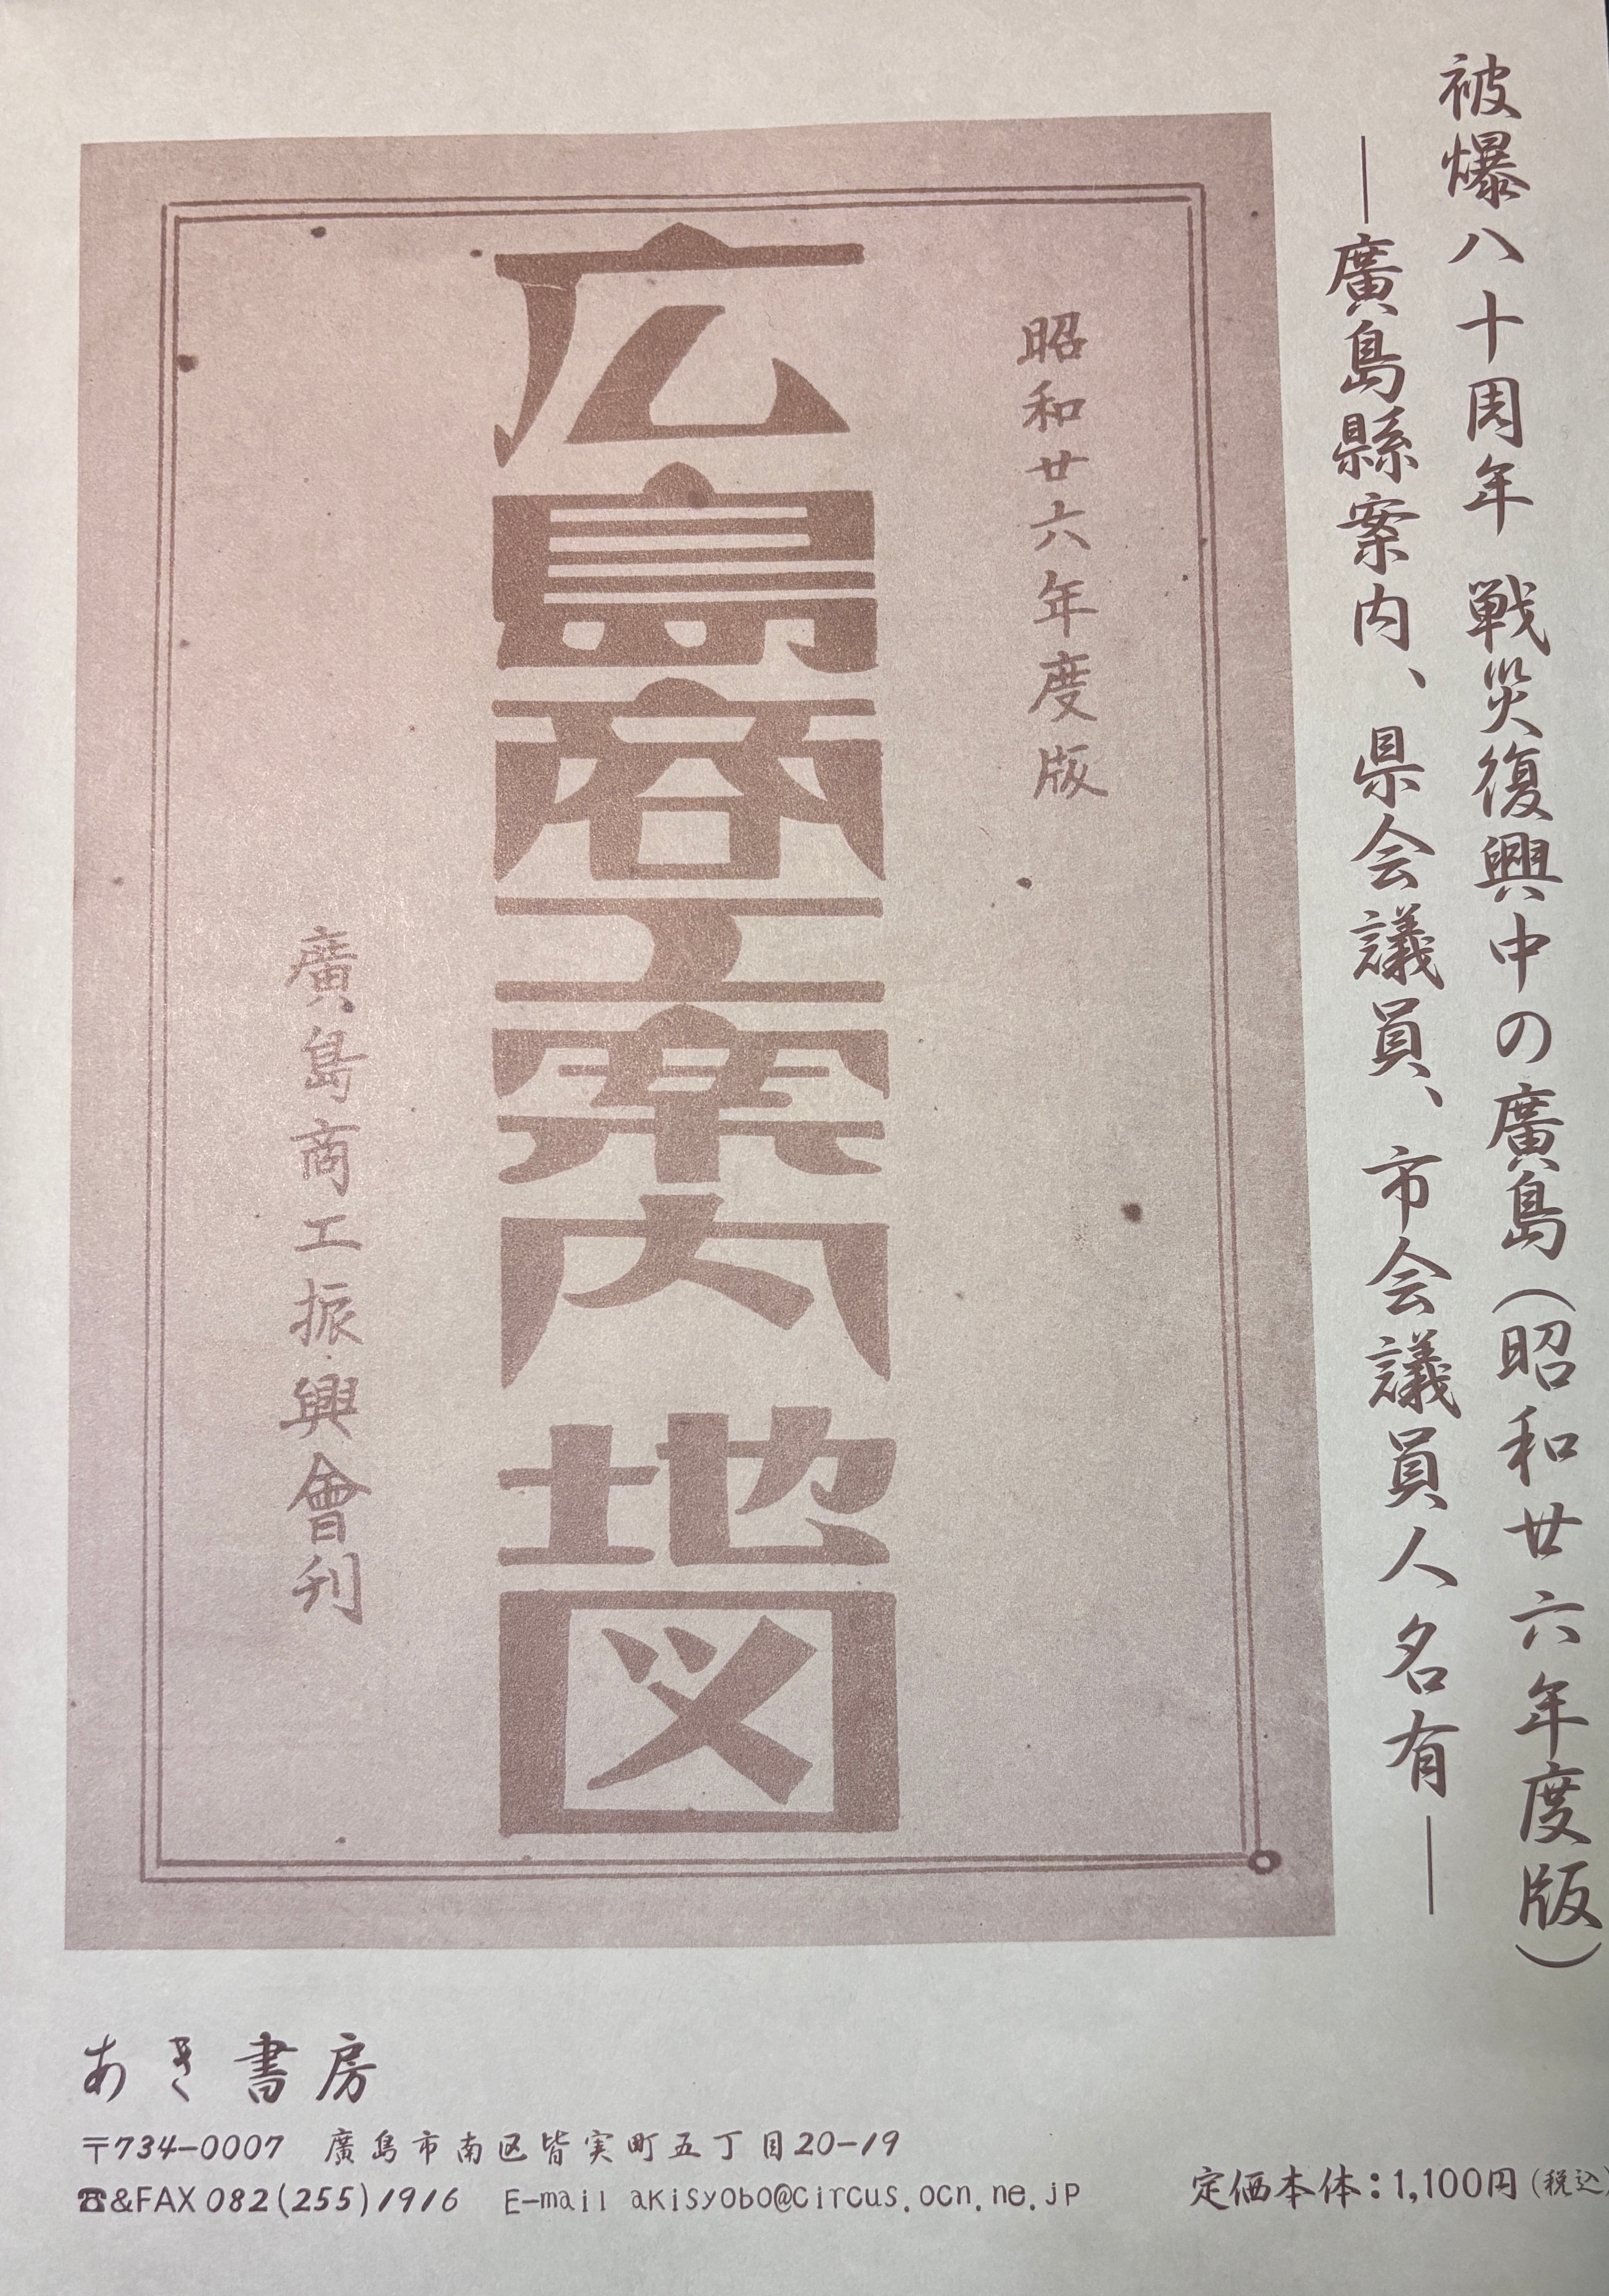 被爆八十周年 戦災復興中の廣島(昭和廿六年度版)
―廣島縣案内、県会議員、市会議員人名有―
昭和廿六年度版
広島商工案内地図
廣島商工振興會刊
あき書房
〒734-0007 廣島市南区皆実町五丁目20-19
☎&FAX 082(255)1916 E-mail akisyobo@circus.ocn.ne.jp
定価本体:1,100円(税込)